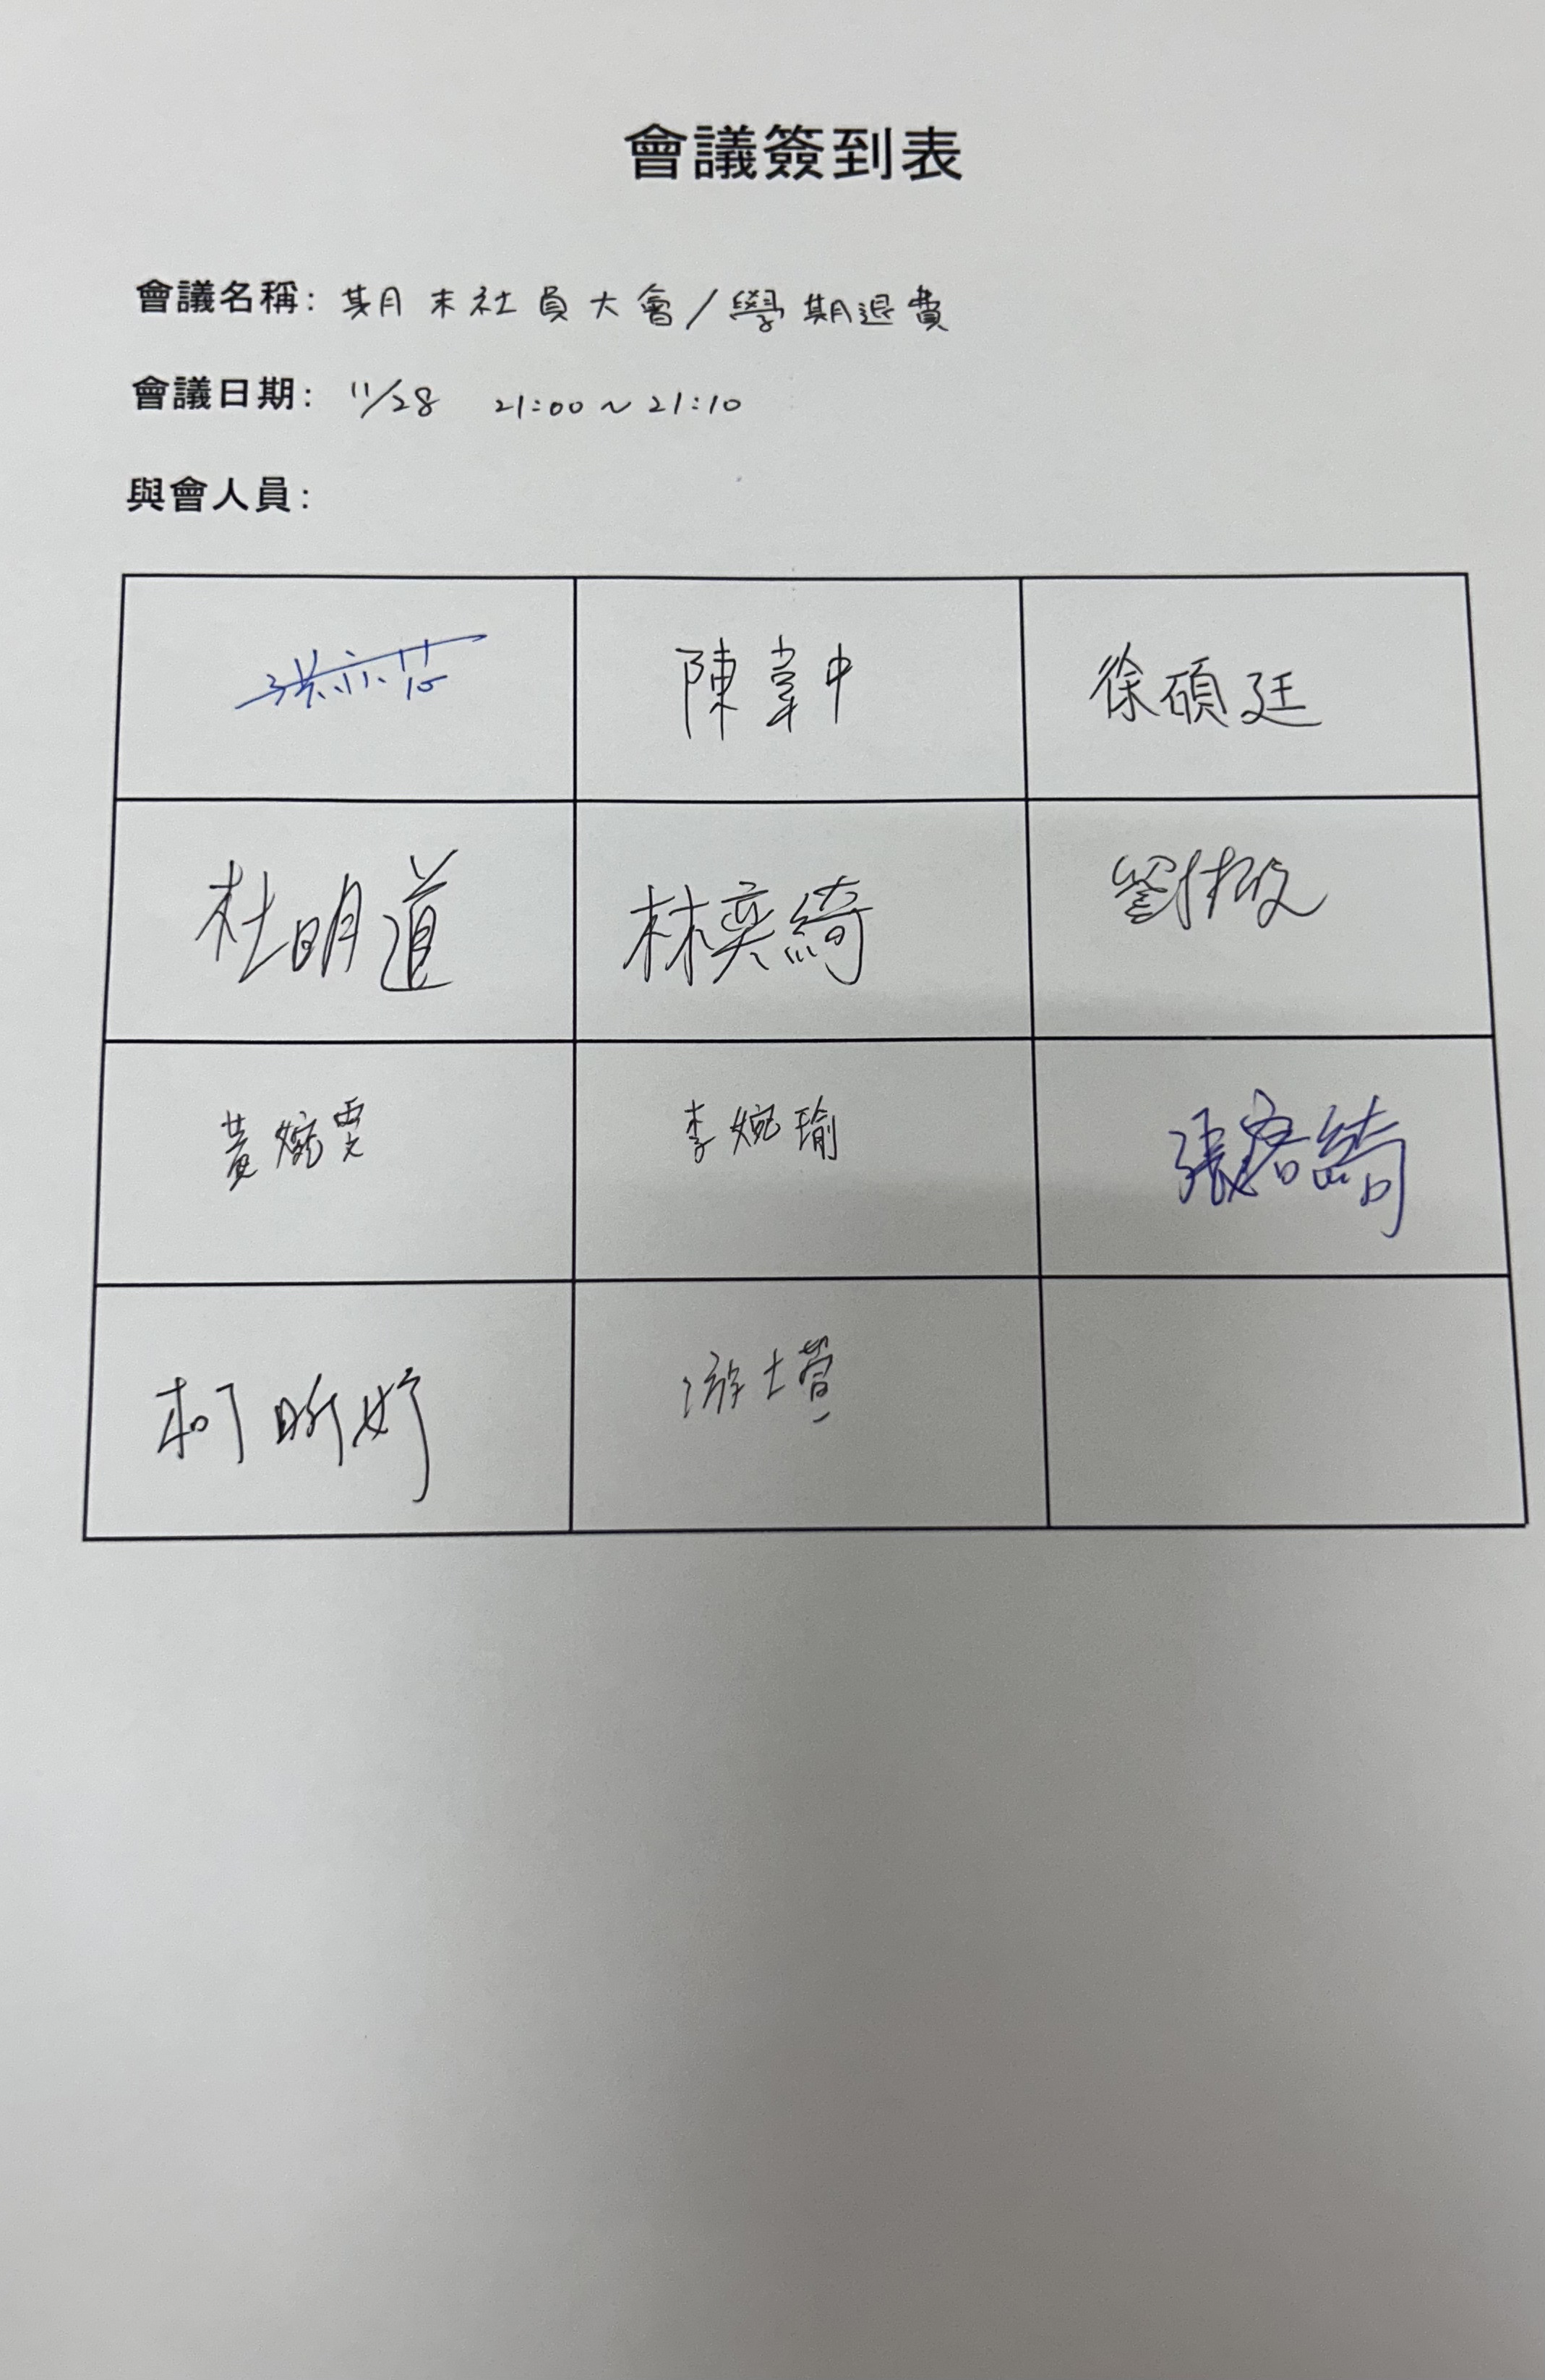 會議簽到表
會議名稱: 期末社員大會/學期退費
會議日期: 11/28 21:00~21:10
與會人員:
陳韋中 徐碩廷
杜明道 林奕綺
黃婉雯 李婉瑜 張容綺
柯昕妤 游士萱